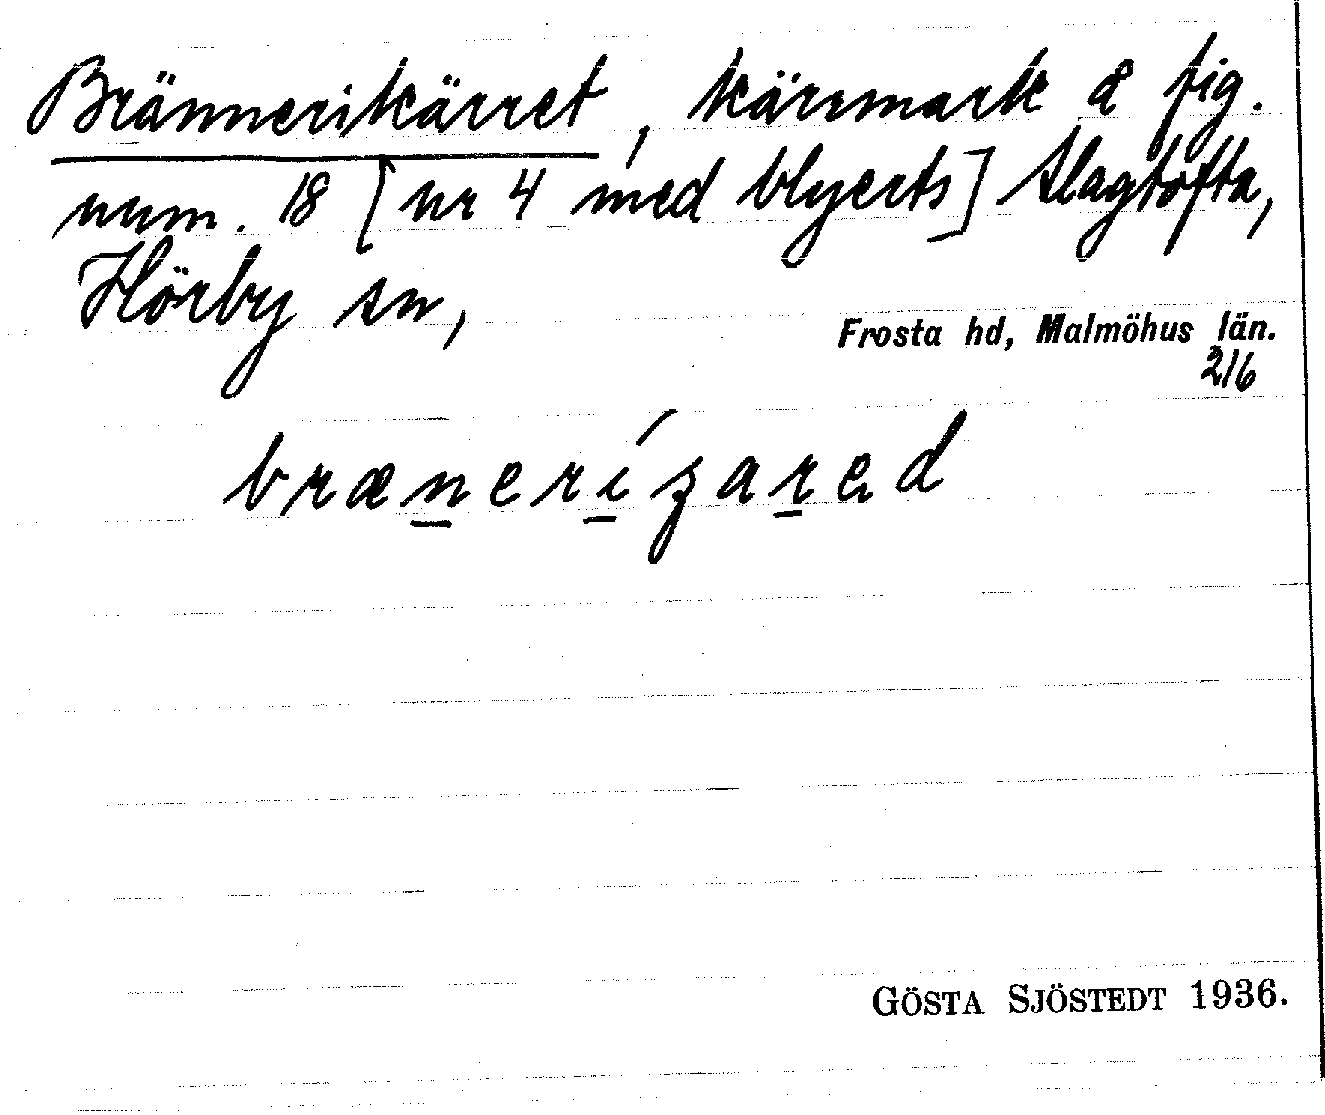 Brännerikärret, kärrmark å fig.
num. 18 [nr 4 med blyerts] Slagtofta,
Hörby sn,
Frosta hd, Malmöhus län.
216
brænerízared
GÖSTA SJÖSTEDT 1936.